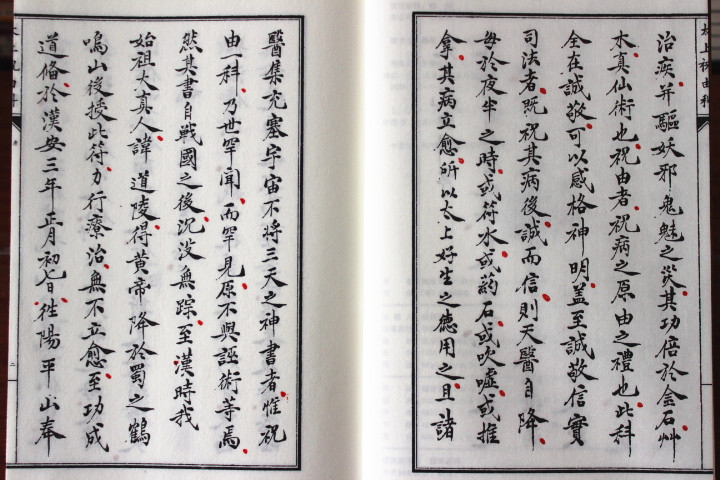 太上祝由科
治疾并驅妖邪鬼魅之災其功倍於金石艸
木真仙術也祝由者祝病之原由之禮也此科
全在誠敬可以感格神明蓋至誠敬信實
司法者既祝其病後誠而信則天醫自降
每於夜半之時或符水或葯石或吹噓或推
拿其病立愈所以太上好生之德用之且諸
醫集充塞宇宙不將三天之神書者惟祝
由一科乃世罕聞而罕見原不與誣術等焉
然其書自戰國之後沉没無踪至漢時我
始祖大真人諱道陵得黃帝降於蜀之鶴
鳴山後授此符力行療治無不立愈至功成
道脩於漢安三年正月初七日往陽平山奉